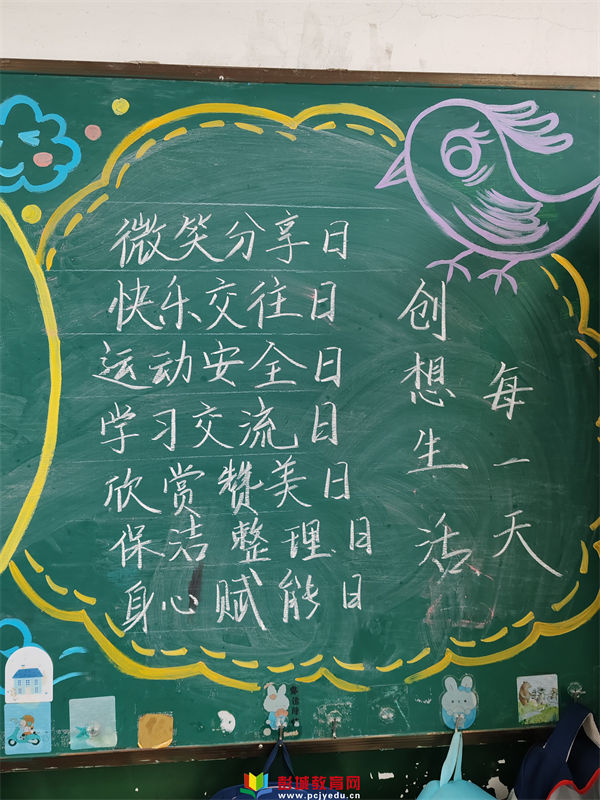 微笑分享日
快乐交往日
运动安全日
学习交流日
欣赏赞美日
保洁整理日
身心赋能日
创想生活
每一天
彭城教育网
www.pcjyedu.cn